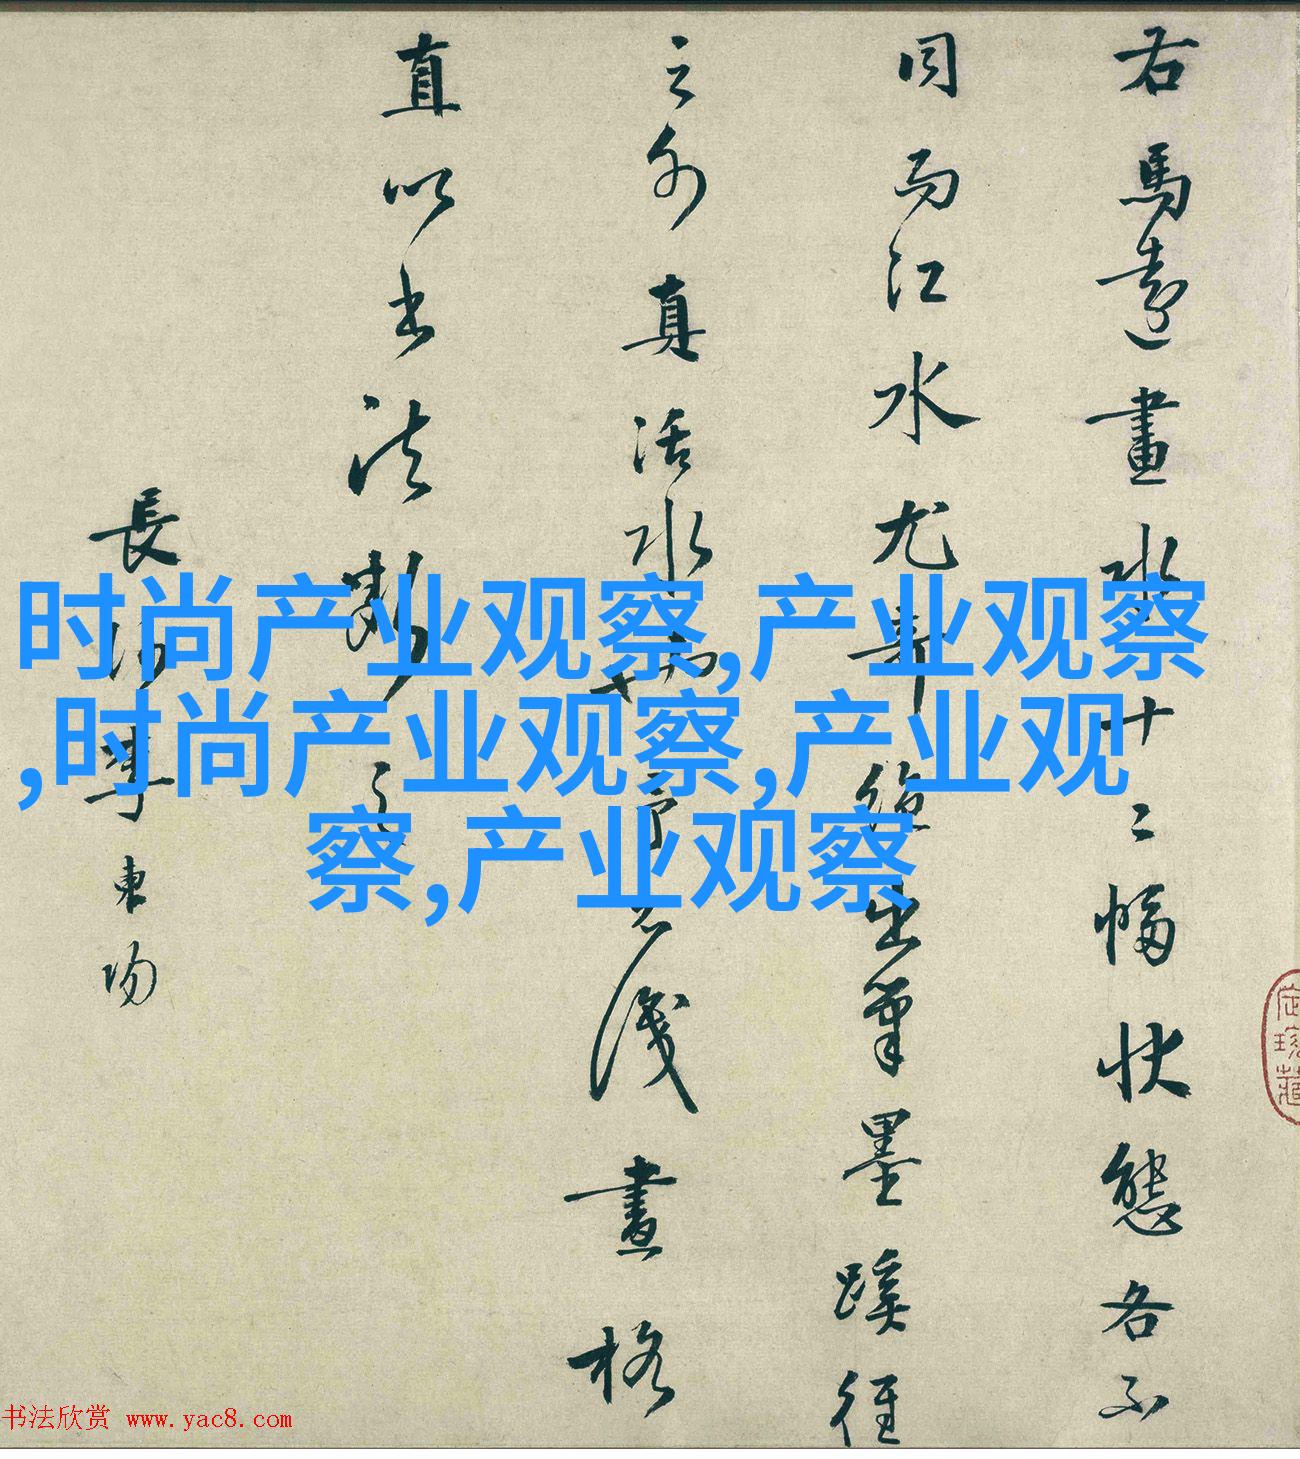 右馬遠畫水十二幅狀態各不
同而江水尤奇絕出筆墨蹊徑
之外真活水也 畫格
直以書法 之
長沙李東陽
时尚产业观察,产业观察
,时尚产业观察,产业观
察,产业观察
书法欣赏 www.yac8.com